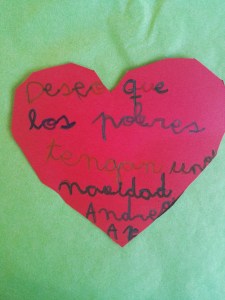 Deseo que
los pobres
tengan una
navidad
Andrea
AP